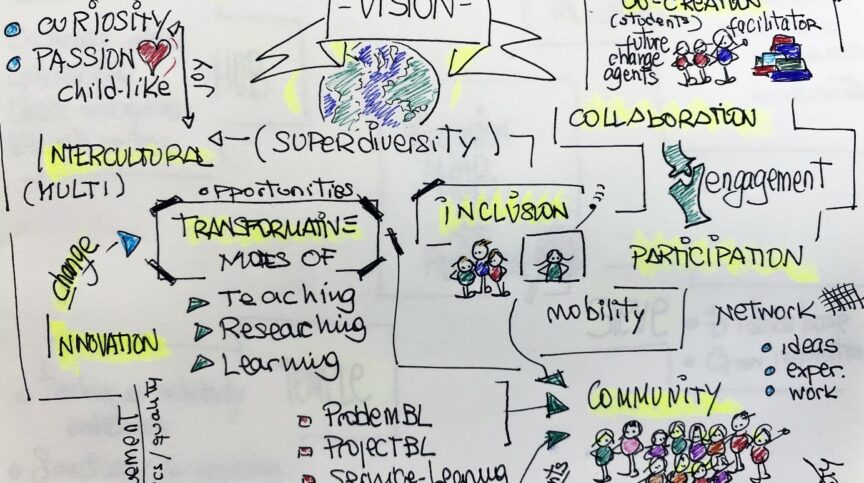 CURIOSITY
PASSION
child-like
JOY
-VISION-
CO-CREATION
(students)
future
change
agents
facilitator
COLLABORATION
(SUPERdiversity)
INTERCULTURAL
(MULTI)
opportunities
TRANSFORMATIVE
MODES OF
Teaching
Reseaching
Learning
change
INNOVATION
INCLUSION
engagement
PARTICIPATION
mobility
NETWORK
ideas
exper.
work
COMMUNITY
ProblemBL
PROJECTBL
SERVICE-Learning
quality